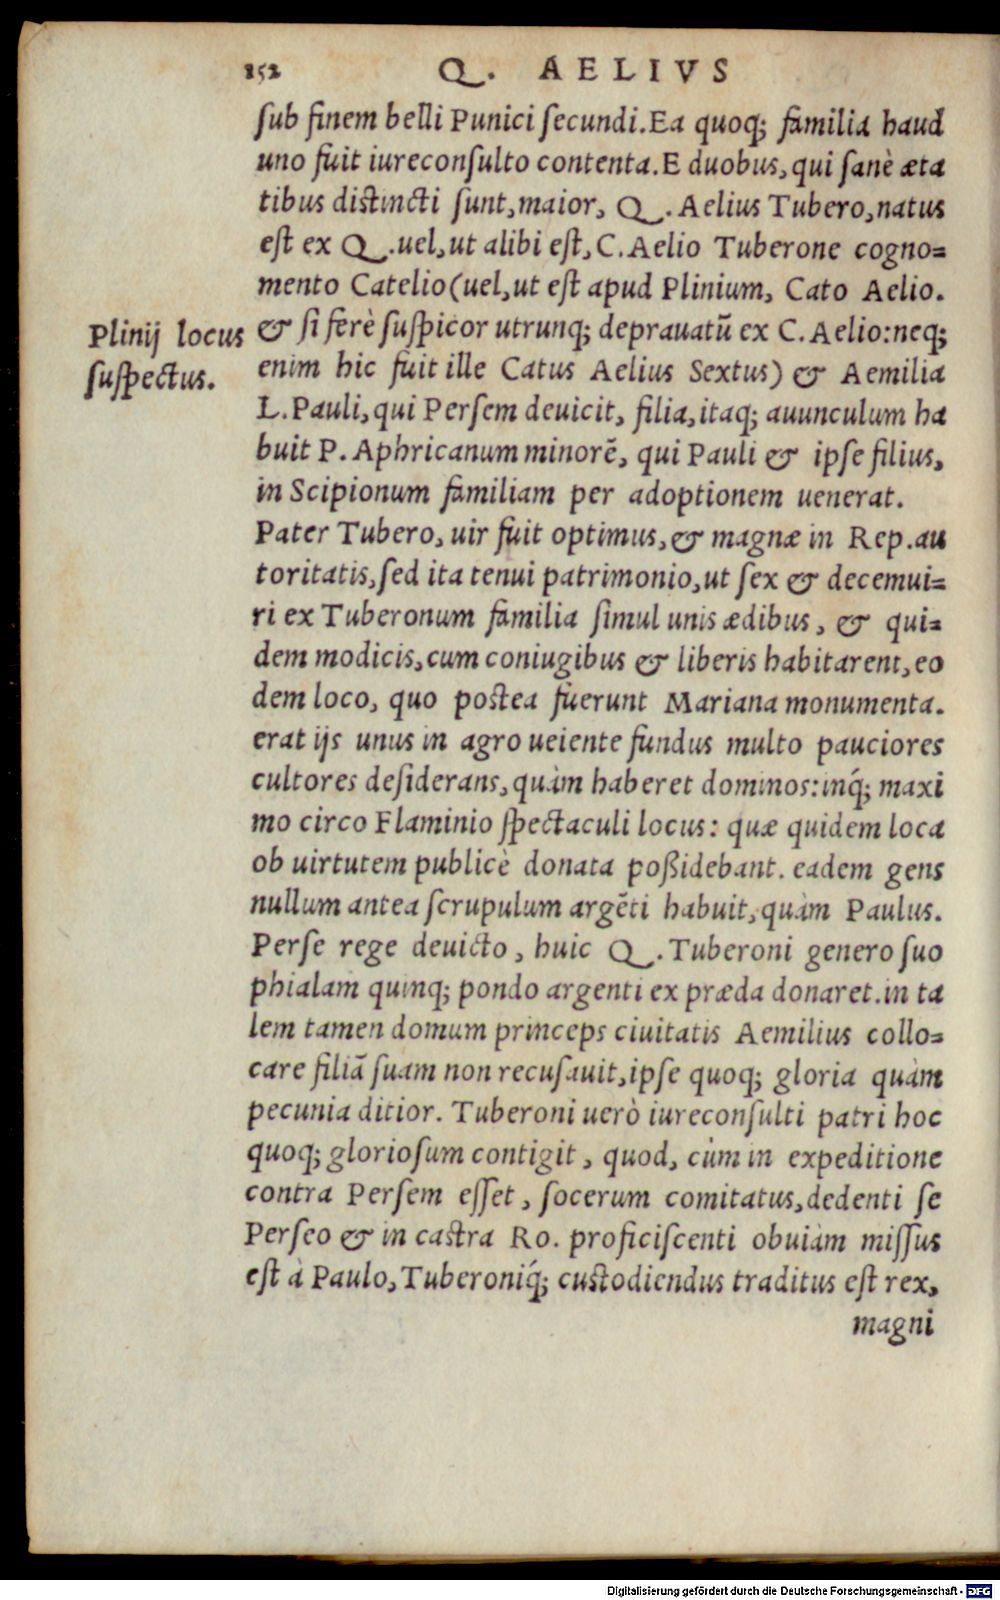 152 Q. AELIVS
sub finem belli Punici secundi. Ea quoq; familia haud
uno fuit iureconsulto contenta. E duobus, qui sanè æta
tibus distincti sunt, maior, Q. Aelius Tubero, natus
est ex Q. uel, ut alibi est, C. Aelio Tuberone cogno=
mento Catelio (uel, ut est apud Plinium, Cato Aelio.
Plinij locus
suspectus.
& si ferè suspicor utrunq; deprauatũ ex C. Aelio: neq;
enim hic fuit ille Catus Aelius Sextus) & Aemilia
L. Pauli, qui Persem deuicit, filia, itaq; auunculum ha
buit P. Aphricanum minorẽ, qui Pauli & ipse filius,
in Scipionum familiam per adoptionem uenerat.
Pater Tubero, uir fuit optimus, & magnæ in Rep. au
toritatis, sed ita tenui patrimonio, ut sex & decemui=
ri ex Tuberonum familia simul unis ædibus, & qui=
dem modicis, cum coniugibus & liberis habitarent, eo
dem loco, quo postea fuerunt Mariana monumenta.
erat ijs unus in agro ueiente fundus multo pauciores
cultores desiderans, quàm haberet dominos: inq́; maxi
mo circo Flaminio spectaculi locus: quæ quidem loca
ob uirtutem publicè donata poßidebant. eadem gens
nullum antea scrupulum argẽti habuit, quàm Paulus.
Perse rege deuicto, huic Q. Tuberoni genero suo
phialam quinq; pondo argenti ex præda donaret. in ta
lem tamen domum princeps ciuitatis Aemilius collo=
care filiã suam non recusauit, ipse quoq; gloria quàm
pecunia ditior. Tuberoni uerò iureconsulti patri hoc
quoq; gloriosum contigit, quod, cùm in expeditione
contra Persem esset, socerum comitatus, dedenti se
Perseo & in castra Ro. proficiscenti obuiàm missus
est à Paulo, Tuberoniq́; custodiendus traditus est rex,
magni
Digitalisierung gefördert durch die Deutsche Forschungsgemeinschaft - DFG